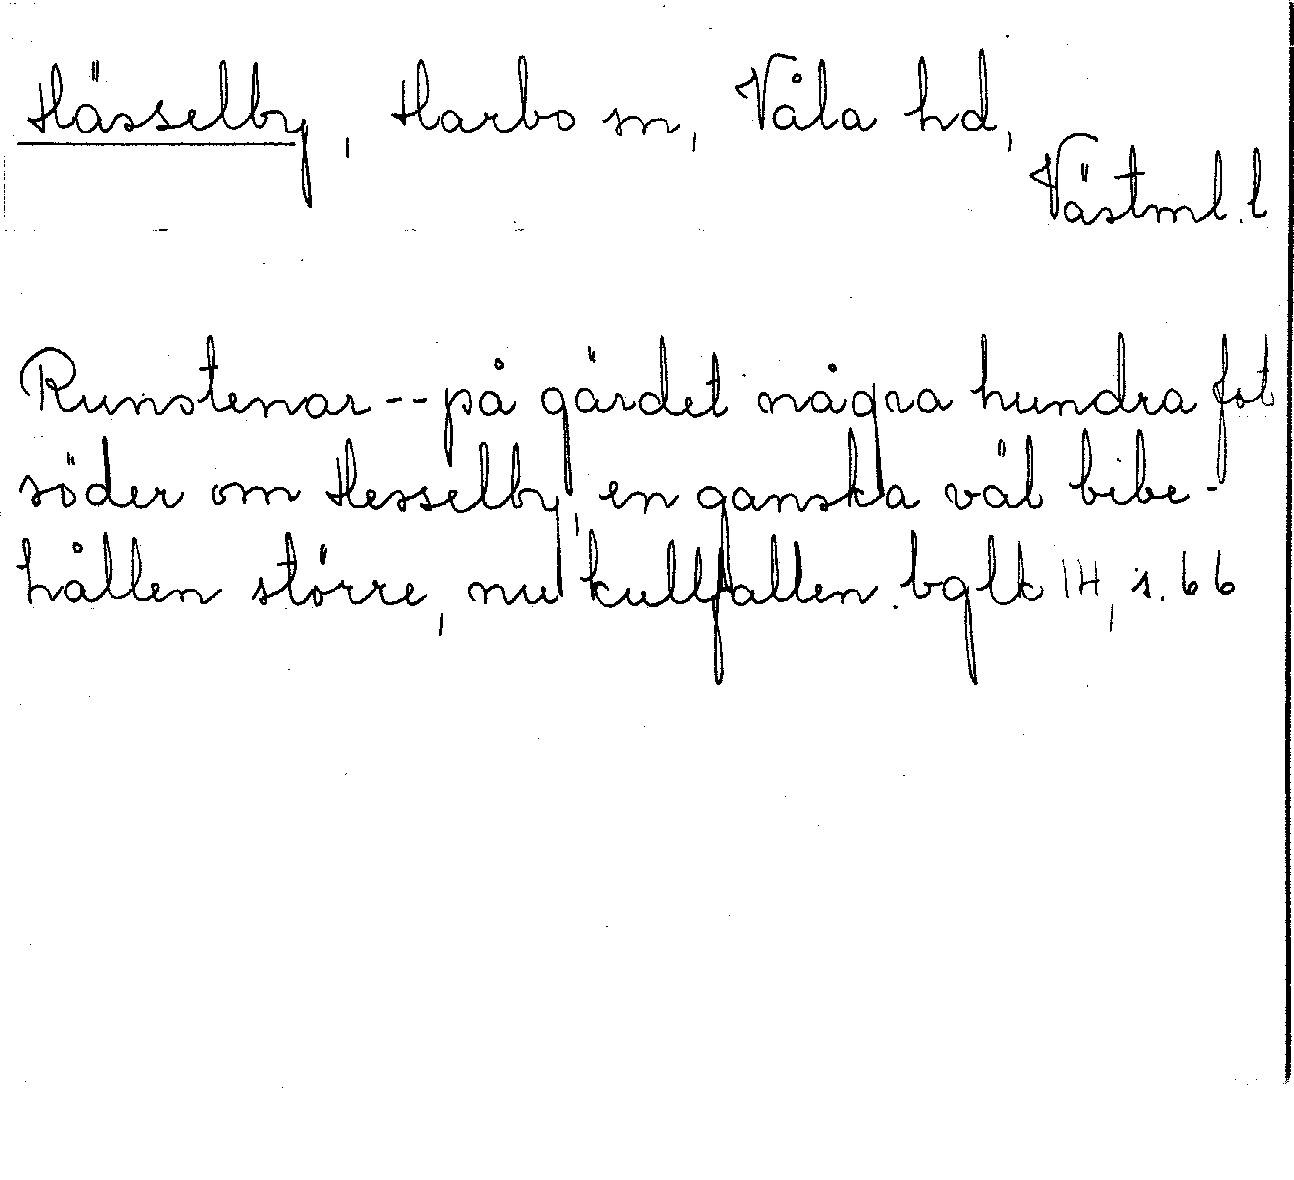 Hässelby, Harbo sn, Våla hd,
Västml. l
Runstenar -- på gärdet några hundra fot
söder om Hesselby, en ganska väl bibe-
hållen större, nu kullfallen. bglk 14, s. 66